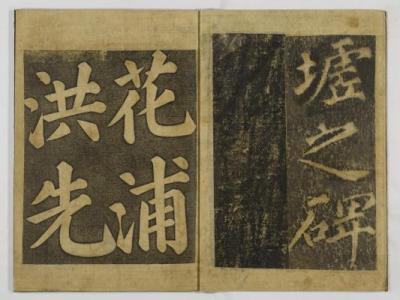 墟之碑
花浦
洪先